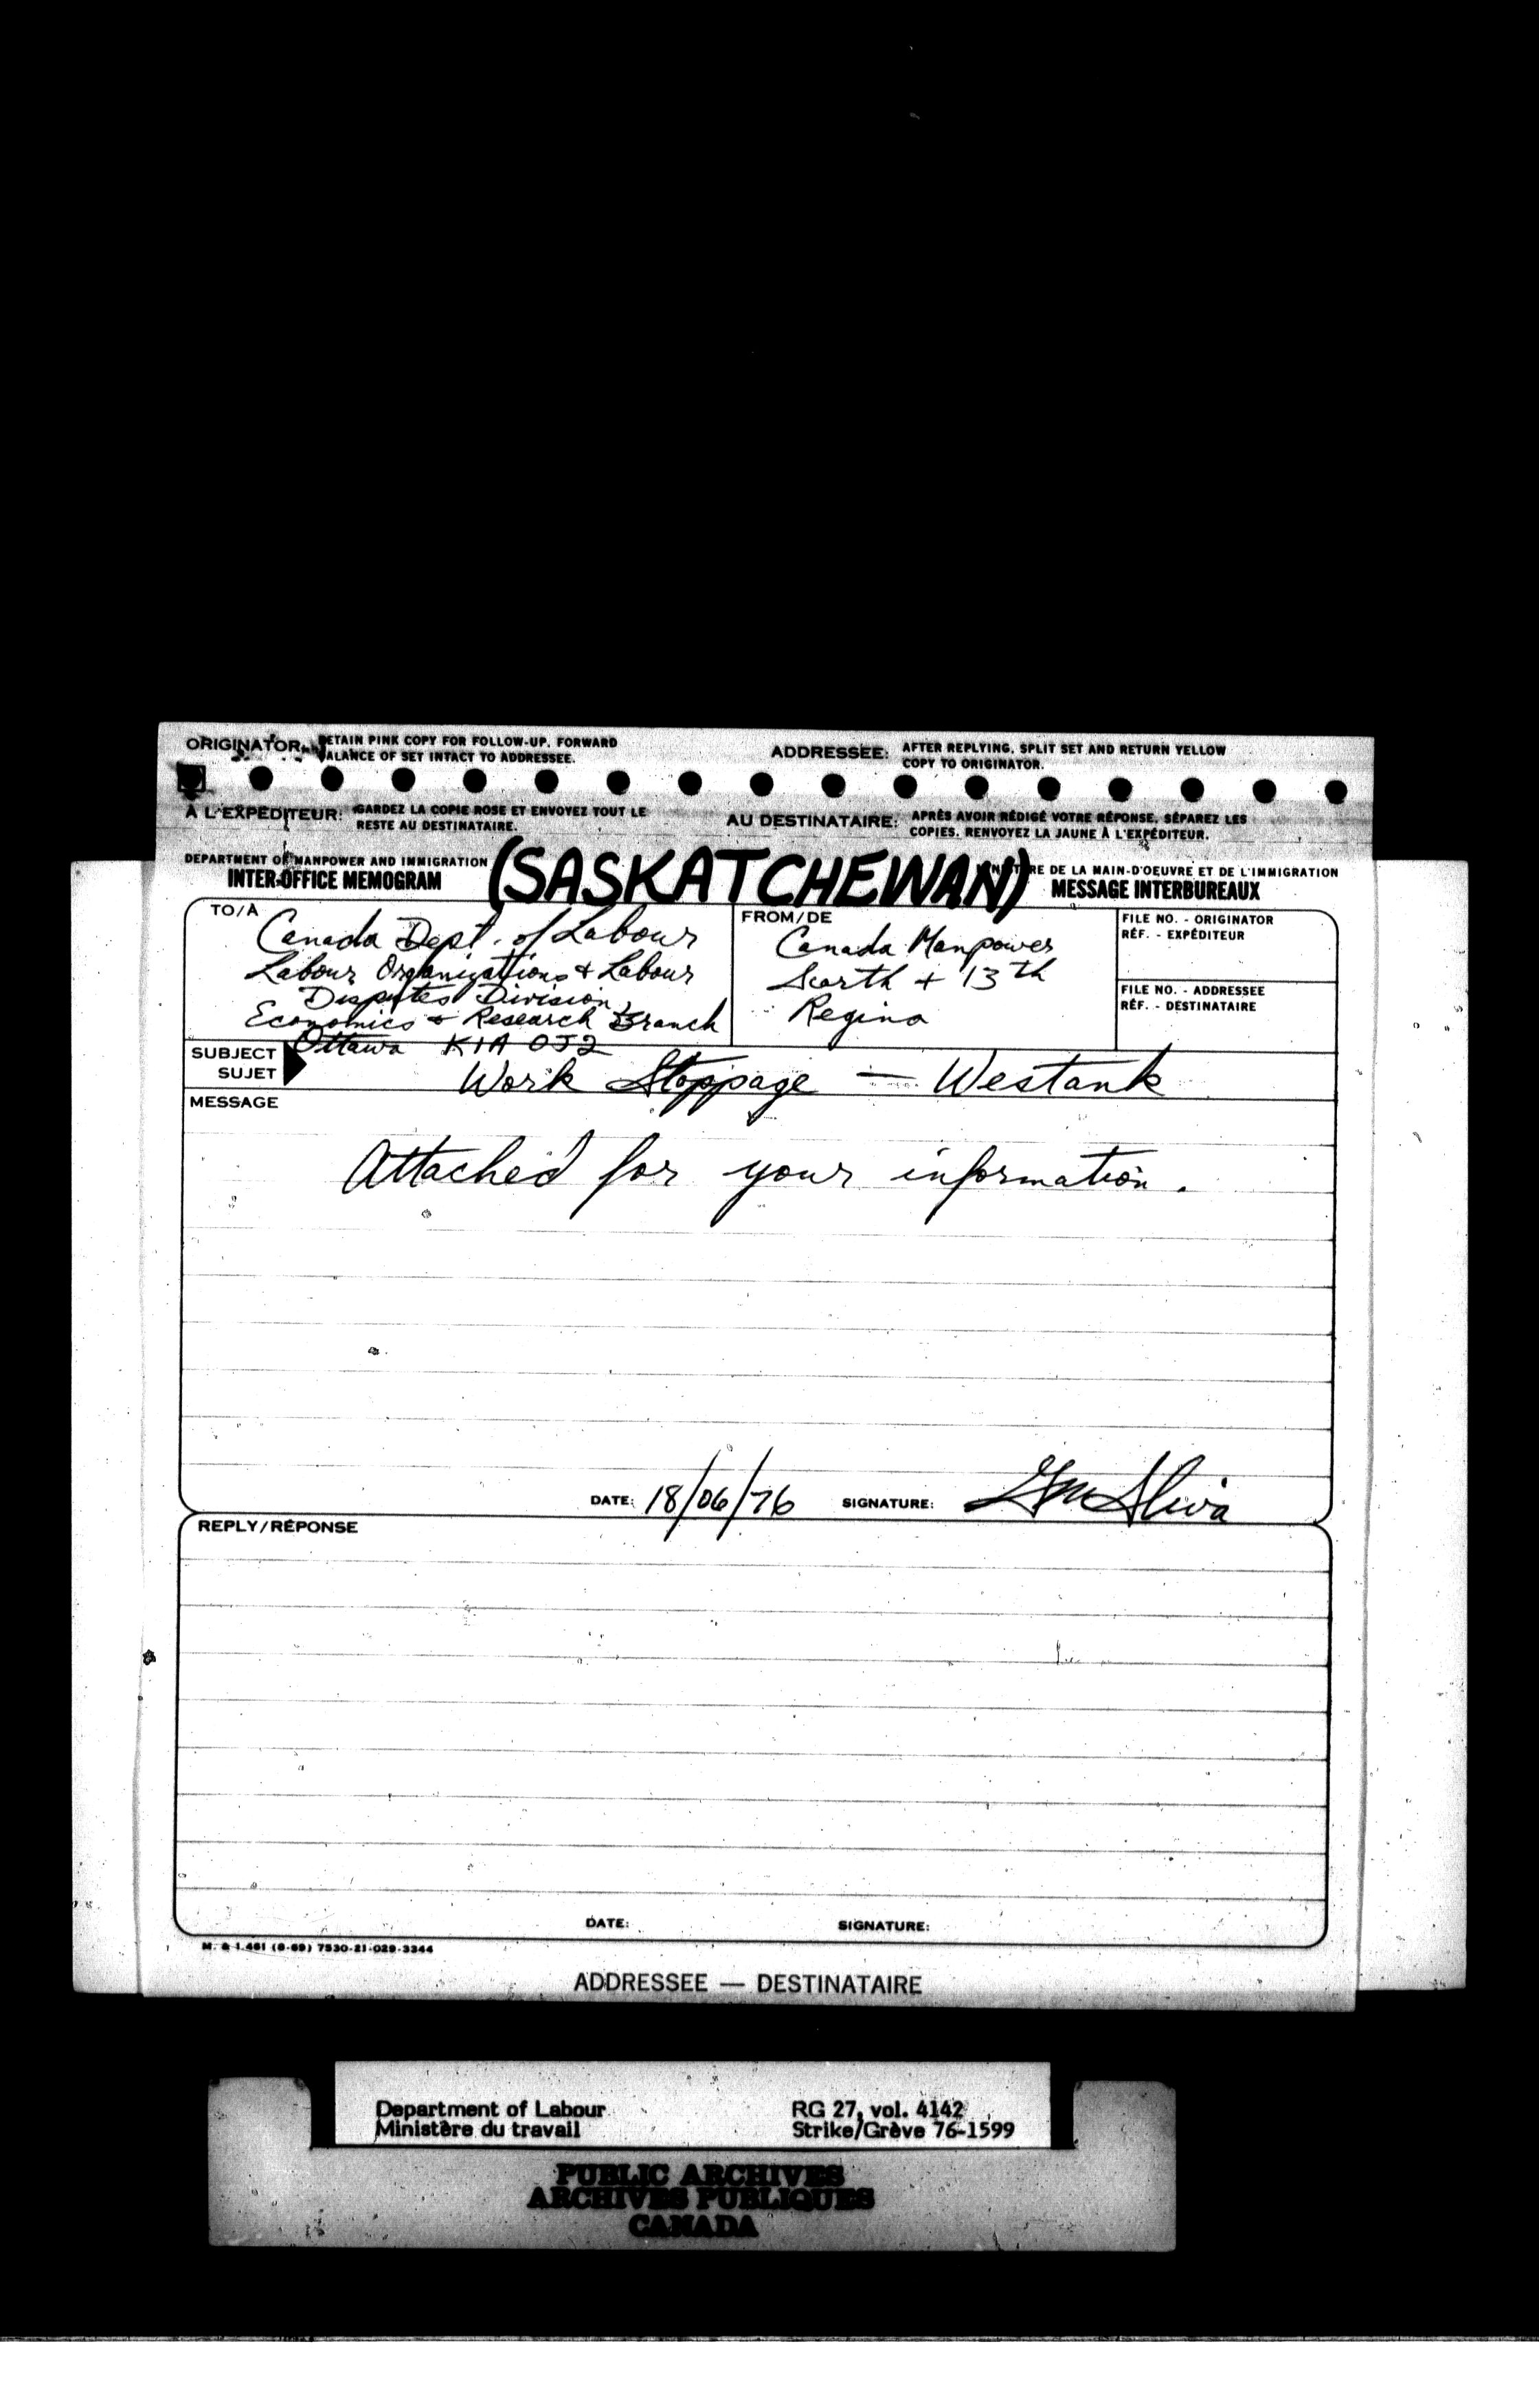 ORIGINATOR: RETAIN PINK COPY FOR FOLLOW-UP, FORWARD
BALANCE OF SET INTACT TO ADDRESSEE.
ADDRESSEE: AFTER REPLYING, SPLIT SET AND RETURN YELLOW
COPY TO ORIGINATOR.
À L'EXPÉDITEUR: GARDEZ LA COPIE ROSE ET ENVOYEZ TOUT LE
RESTE AU DESTINATAIRE.
AU DESTINATAIRE: APRÈS AVOIR RÉDIGÉ VOTRE RÉPONSE, SÉPAREZ LES
COPIES. RENVOYEZ LA JAUNE À L'EXPÉDITEUR.
DEPARTMENT OF MANPOWER AND IMMIGRATION
INTER-OFFICE MEMOGRAM
(SASKATCHEWAN)
MINISTÈRE DE LA MAIN-D'OEUVRE ET DE L'IMMIGRATION
MESSAGE INTERBUREAUX
TO/À
Canada Dept. of Labour
Labour Organizations & Labour
Disputes Division,
Economics & Research Branch
Ottawa K1A 0J2
FROM/DE
Canada Manpower
Scarth + 13th
Regina
FILE NO. - ORIGINATOR
RÉF. - EXPÉDITEUR
FILE NO. - ADDRESSEE
RÉF. - DESTINATAIRE
SUBJECT
SUJET
Work Stoppage — Westank
MESSAGE
Attached for your information.
DATE: 18/06/76 SIGNATURE:
REPLY/RÉPONSE
DATE: SIGNATURE:
M. & I. 461 (8-69) 7530-21-029-3344
ADDRESSEE — DESTINATAIRE
Department of Labour
Ministère du travail
RG 27, vol. 4142
Strike/Grève 76-1599
PUBLIC ARCHIVES
ARCHIVES PUBLIQUES
CANADA